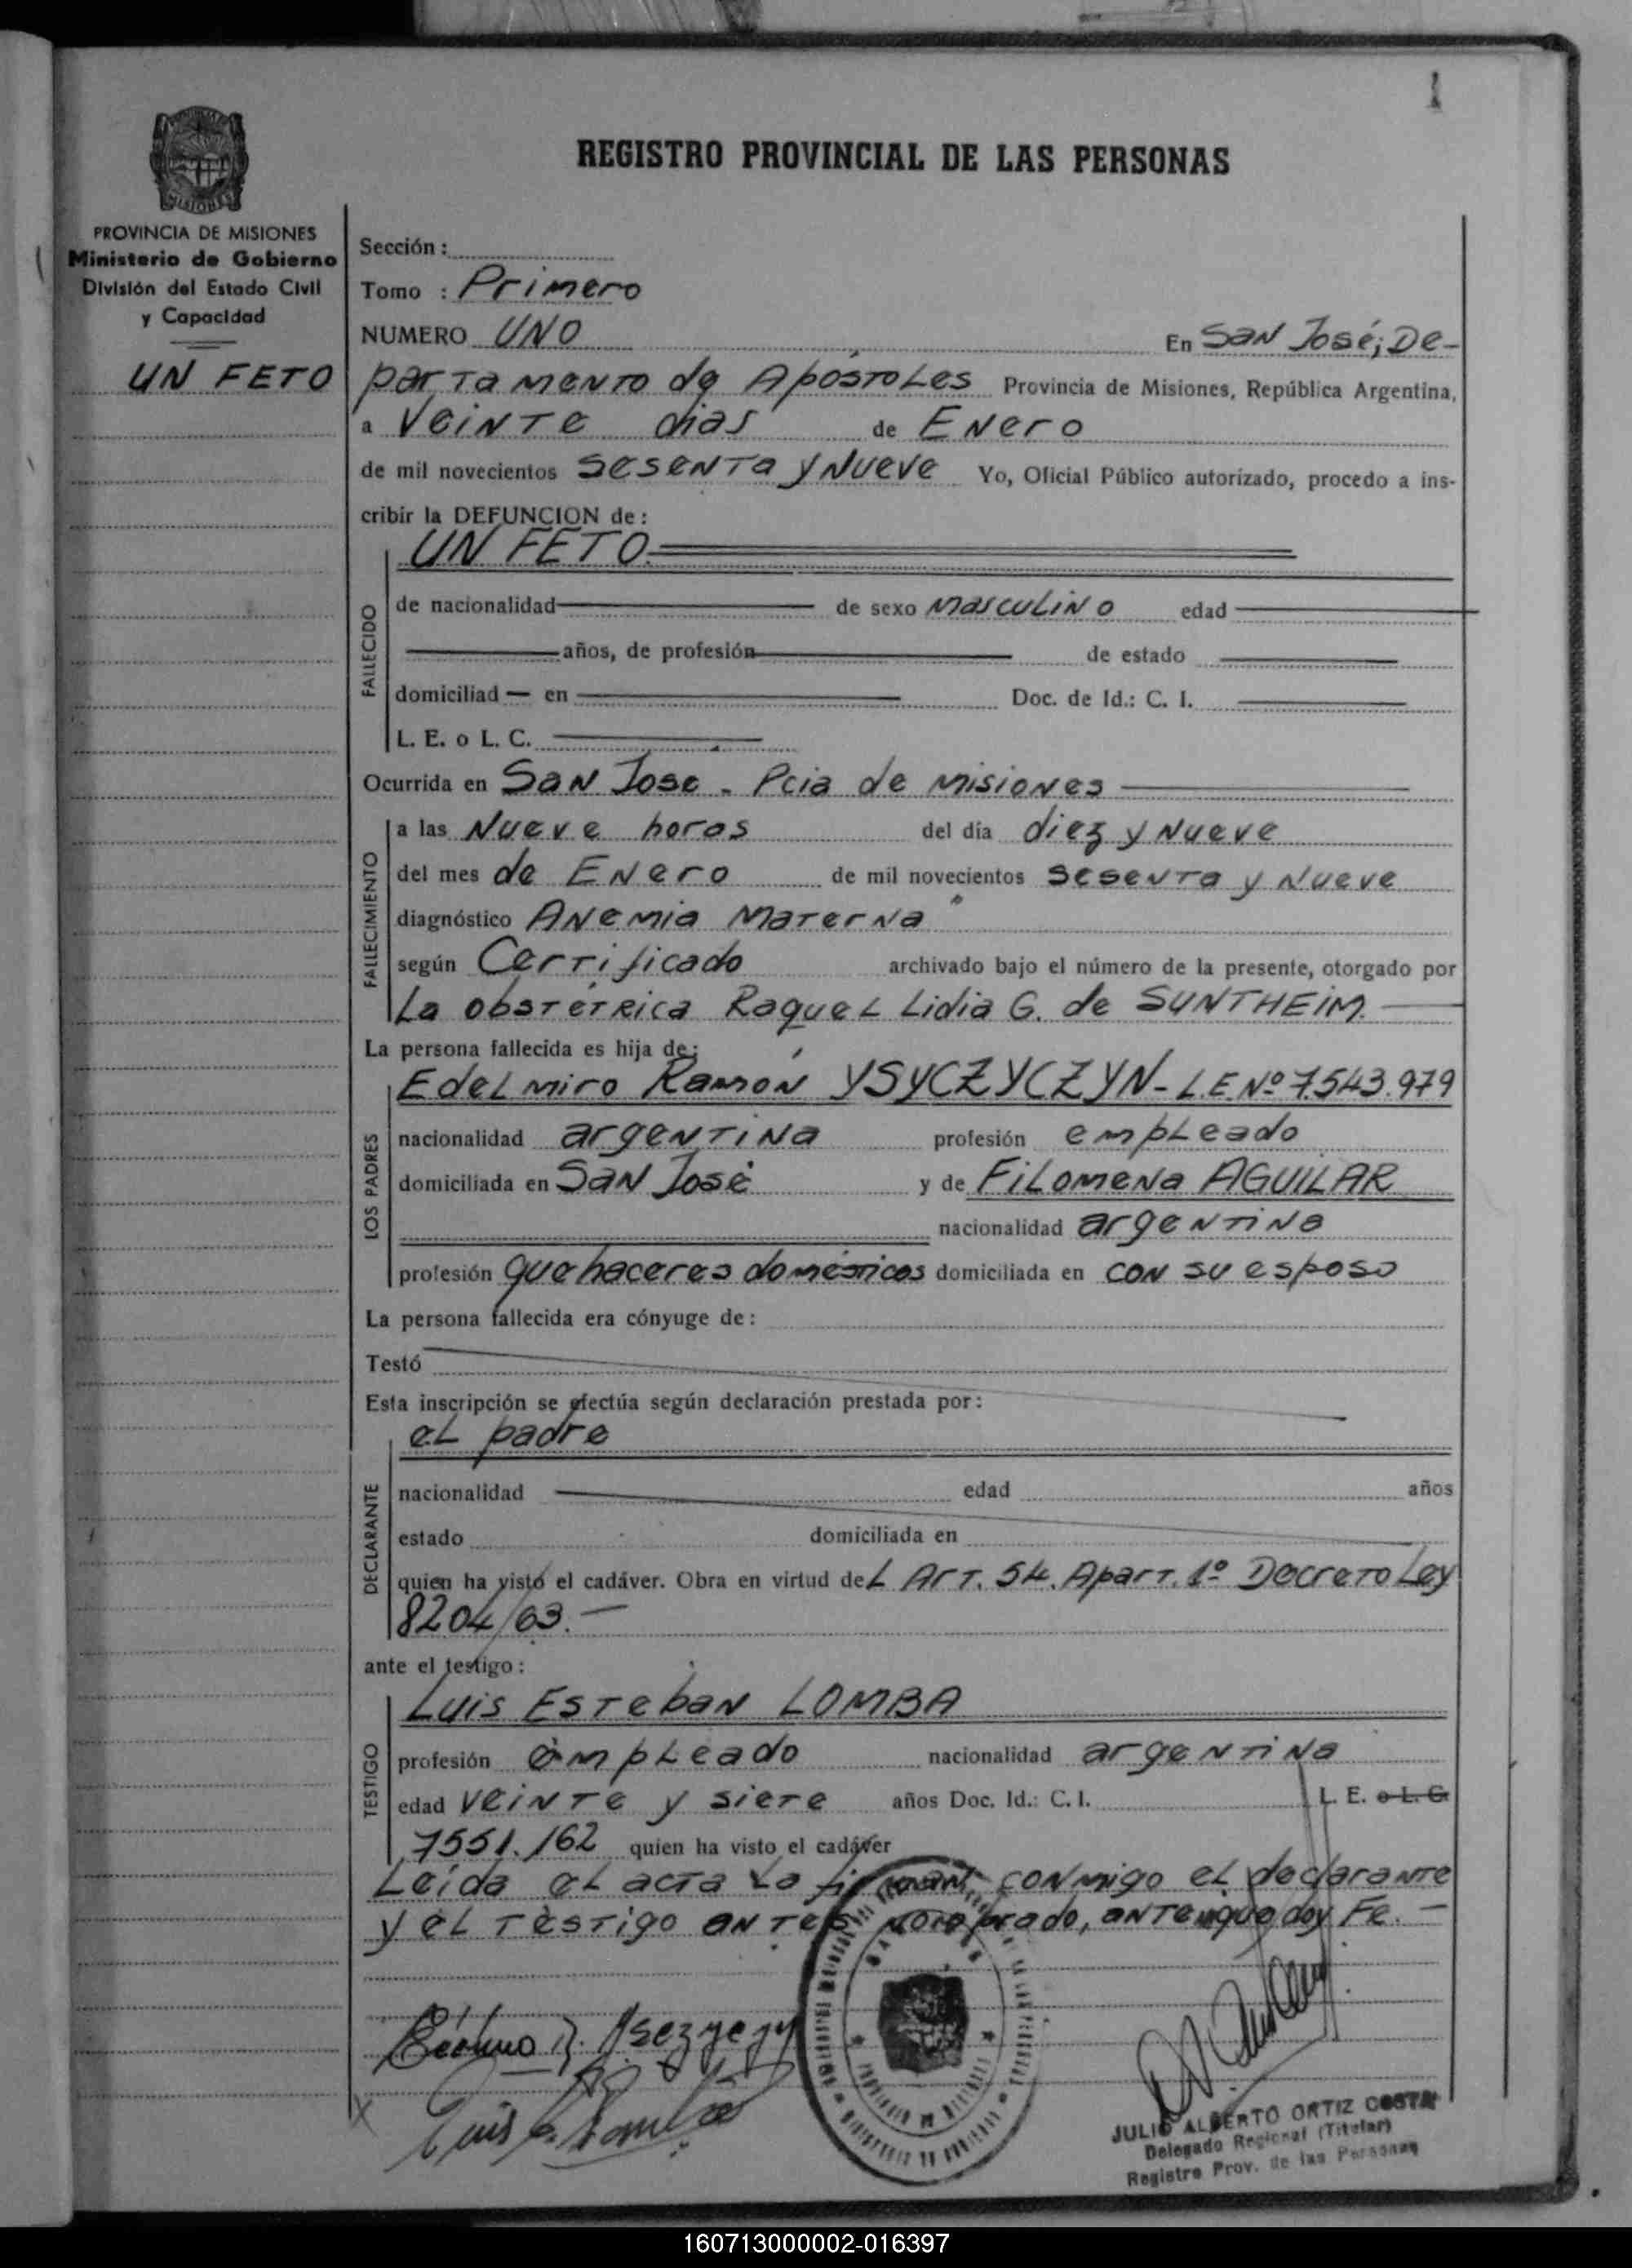 1
REGISTRO PROVINCIAL DE LAS PERSONAS
MISIONES
PROVINCIA DE MISIONES
Ministerio de Gobierno
División del Estado Civil
y Capacidad
UN FETO
Sección :
Tomo : Primero
NUMERO UNO En San José, De-
partamento de Apóstoles Provincia de Misiones, República Argentina,
a Veinte dias de Enero
de mil novecientos Sesenta y Nueve Yo, Oficial Público autorizado, procedo a ins-
cribir la DEFUNCION de :
UN FETO.
FALLECIDO
de nacionalidad de sexo masculino edad
años, de profesión de estado
domiciliad — en Doc. de Id.: C. I.
L. E. o L. C.
Ocurrida en San Jose - Pcia de misiones
FALLECIMIENTO
a las Nueve horas del día diez y Nueve
del mes de Enero de mil novecientos Sesenta y Nueve
diagnóstico Anemia Materna
según Certificado archivado bajo el número de la presente, otorgado por
La obstétrica Raquel Lidia G. de SUNTHEIM.
La persona fallecida es hija de:
LOS PADRES
Edelmiro Ramón YSYCZYCZYN - L.E. Nº 7.543.979
nacionalidad argentina profesión empleado
domiciliada en San José y de Filomena AGUILAR
nacionalidad argentina
profesión quehaceres domésticos domiciliada en con su esposo
La persona fallecida era cónyuge de :
Testó
Esta inscripción se efectúa según declaración prestada por :
el padre
DECLARANTE
nacionalidad edad años
estado domiciliada en
quien ha visto el cadáver. Obra en virtud del Art. 54. Apart. 1º Decreto Ley
8204/63. —
ante el testigo :
TESTIGO
Luis Esteban LOMBA
profesión empleado nacionalidad argentina
edad veinte y siete años Doc. Id.: C. I. L. E. o L. C.
7551.162 quien ha visto el cadáver
Leída el acta la firman conmigo el declarante
y el testigo antes nombrado, ante que doy Fe. —
JULIO ALBERTO ORTIZ COSTA
Delegado Regional (Titular)
Registro Prov. de las Personas
160713000002-016397